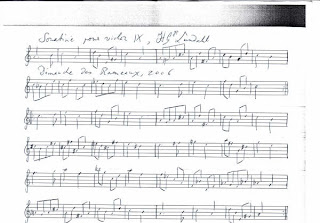 Sonatine pour violon IX, H G Lundell
Dimanche des Rameaux, 2006